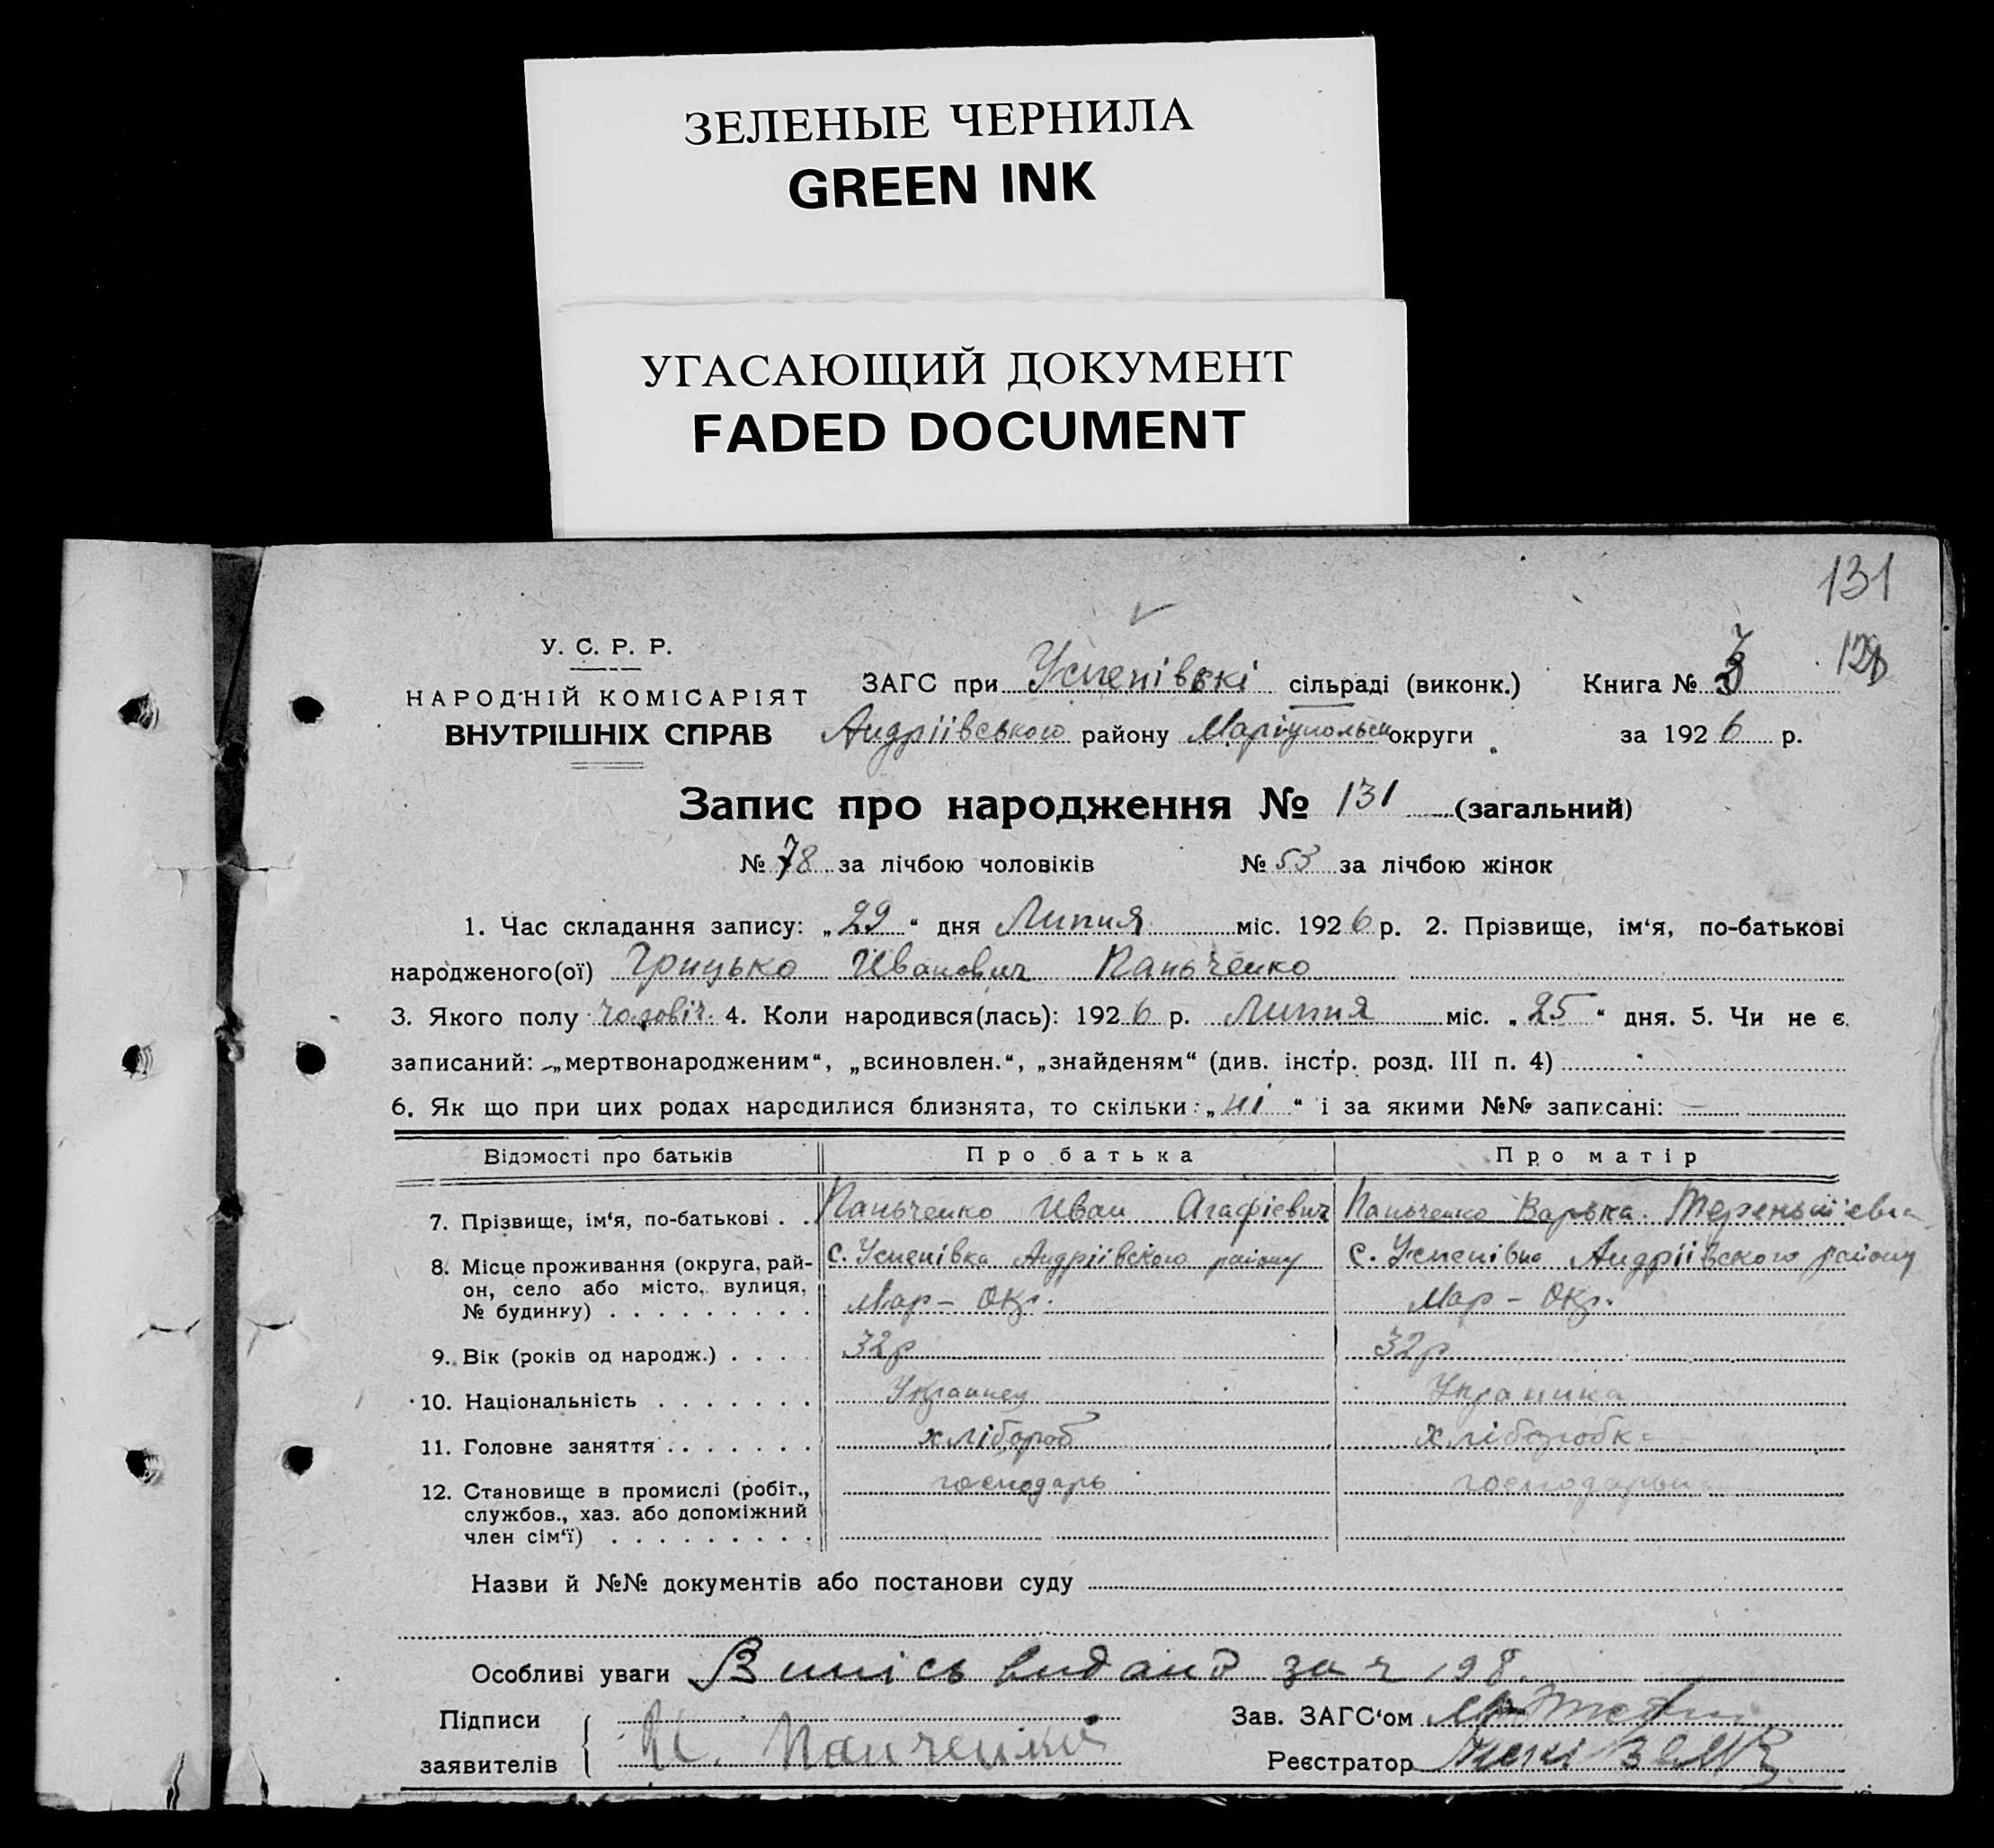 ЗЕЛЕНЫЕ ЧЕРНИЛА
GREEN INK
УГАСАЮЩИЙ ДОКУМЕНТ
FADED DOCUMENT
131
У. С. Р. Р.
НАРОДНІЙ КОМІСАРІЯТ
ВНУТРІШНІХ СПРАВ
ЗАГС при Успенівскі сільраді (виконк.) Книга № 3
Андріівського району Маріупольськ округи за 1926 р.
Запис про народження № 131 (загальний)
№ 78 за лічбою чоловіків № 53 за лічбою жінок
1. Час складання запису: „29“ дня Липня міс. 1926 р. 2. Прізвище, ім‘я, по-батькові
народженого(ої) Грицько Иванович Паньченко
3. Якого полу чоловіч. 4. Коли народився(лась): 1926 р. Липня міс. „25“ дня. 5. Чи не є
записаний: „мертвонародженим“, „всиновлен.“, „знайденям“ (див. інстр. розд. III п. 4)
6. Як що при цих родах народилися близнята, то скільки: „ні“ і за якими №№ записані: —
Відомості про батьків Про батька Про матір
7. Прізвище, ім‘я, по-батькові . . Паньченко Иван Агафієвич Паньченко Варька Терентіївна
8. Місце проживання (округа, рай- с. Успенівка Андріівского району с. Успенівка Андріівского району
он, село або місто, вулиця,
№ будинку) . . . . . . . . . Мар - Окр. Мар - Окр.
9. Вік (років од народж.) . . . . 32р 32р
10. Національність . . . . . . . Украинец Украинка
11. Головне заняття . . . . . . . хлібороб хліборобка
12. Становище в промислі (робіт., господарь господарька
службов., хаз. або допоміжний
член сім‘ї) . . . . . . . . .
Назви й №№ документів або постанови суду
Особливі уваги Випісь видано за ч 198.
Підписи
заявителів И. Панченко
Зав. ЗАГС‘ом
Реєстратор